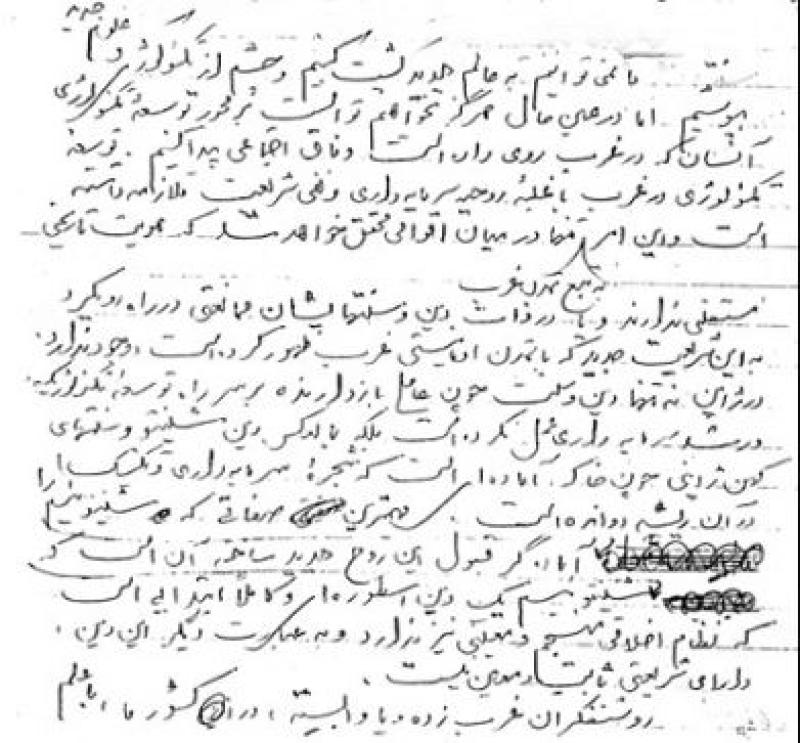 علوم جدید
ما نمی توانیم به عالم جدید پشت کنیم و چشم از تکنولوژی و
بپوشیم. اما در عین حال هرگز نخواهیم توانست بر محور توسعهٔ تکنولوژی
آنسان که در غرب روی داده است وفاق اجتماعی پیدا کنیم. توسعهٔ
تکنولوژی در غرب با غلبهٔ روحیه سرمایه داری و نفی شریعت ملازمه داشته
است و این امر تنها در میان اقوامی محقق خواهد شد که هویت تاریخی
به تبع تمدن غرب
مستقلی ندارند و یا در ذات دین و سنتهایشان ممانعتی در راه رویکرد
به این شریعت جدید که با تمدن اومانیستی غرب ظهور کرده است، وجود ندارد.
در ژاپن نه تنها دین و سنت چون عاملی بازدارنده بر سر راه توسعهٔ تکنولوژیک
و رشد سرمایه داری عمل نکرده است بلکه بالعکس دین شینتو و سنتهای
کهن ژاپنی چون خاک آماده ای است که شجرهٔ سرمایه داری و تکنیک
در آن ریشه دوانده است. مهمترین صفاتی که شینتوئیسم را
آمادهٔ قبول این روح جدید ساخته آن است که
شینتوئیسم یک دین اسطوره ای و کاملاً ابتدایی است
که نظام اخلاقی منسجم و معینی نیز ندارد و به عبارت دیگر این دین،
دارای شریعتی ثابت و مدون نیست.
روشنفکران غرب زده و یا وابسته، در کشور ما، با علم